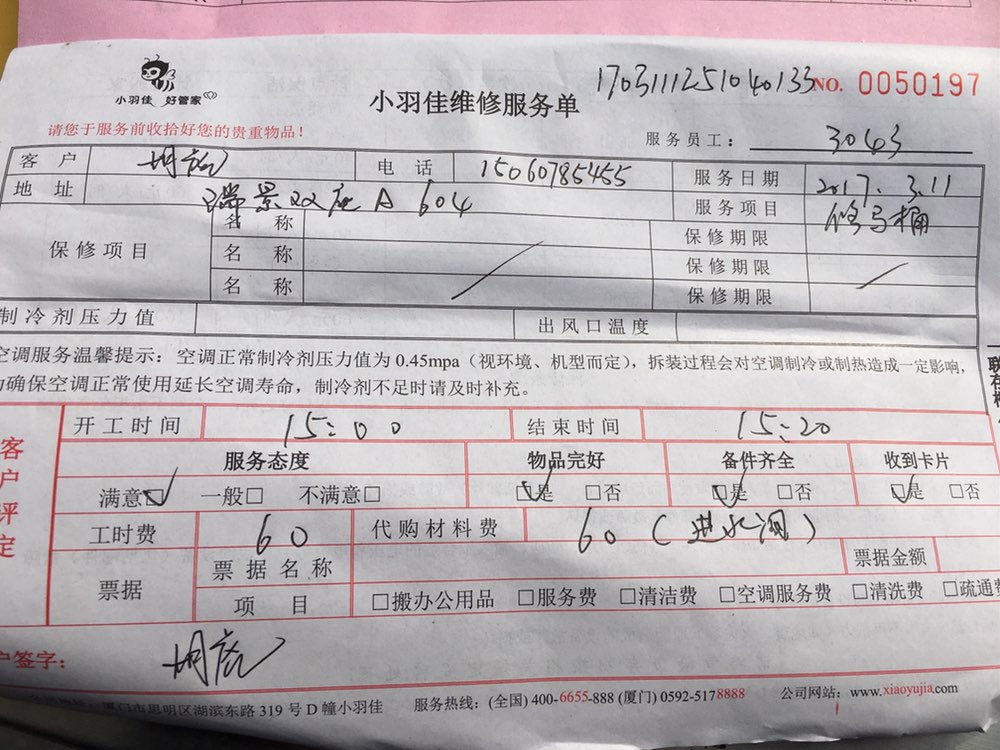 小羽佳 好管家
小羽佳维修服务单
1703111251040133 NO. 0050197
请您于服务前收拾好您的贵重物品！
服务员工： 3043
客户 电话 15060785455 服务日期 2017.3.11
地址 瑞景双座A 604 服务项目 修马桶
保修项目 名称 保修期限
名称 保修期限
名称 保修期限
制冷剂压力值 出风口温度
空调服务温馨提示：空调正常制冷剂压力值为0.45mpa（视环境、机型而定），拆装过程会对空调制冷或制热造成一定影响，
为确保空调正常使用延长空调寿命，制冷剂不足时请及时补充。
客户评定
开工时间 15:00 结束时间 15:20
服务态度 物品完好 备件齐全 收到卡片
满意☑ 一般□ 不满意□ ☑是 □否 ☑是 □否 ☑是 □否
工时费 60 代购材料费 60（进水阀）
票据 票据名称 票据金额
项目 □搬办公用品 □服务费 □清洁费 □空调服务费 □清洗费 □疏通费
户签字：
厦门市思明区湖滨东路319号D幢小羽佳 服务热线：(全国) 400-6655-888 (厦门) 0592-5178888 公司网站：www.xiaoyujia.com